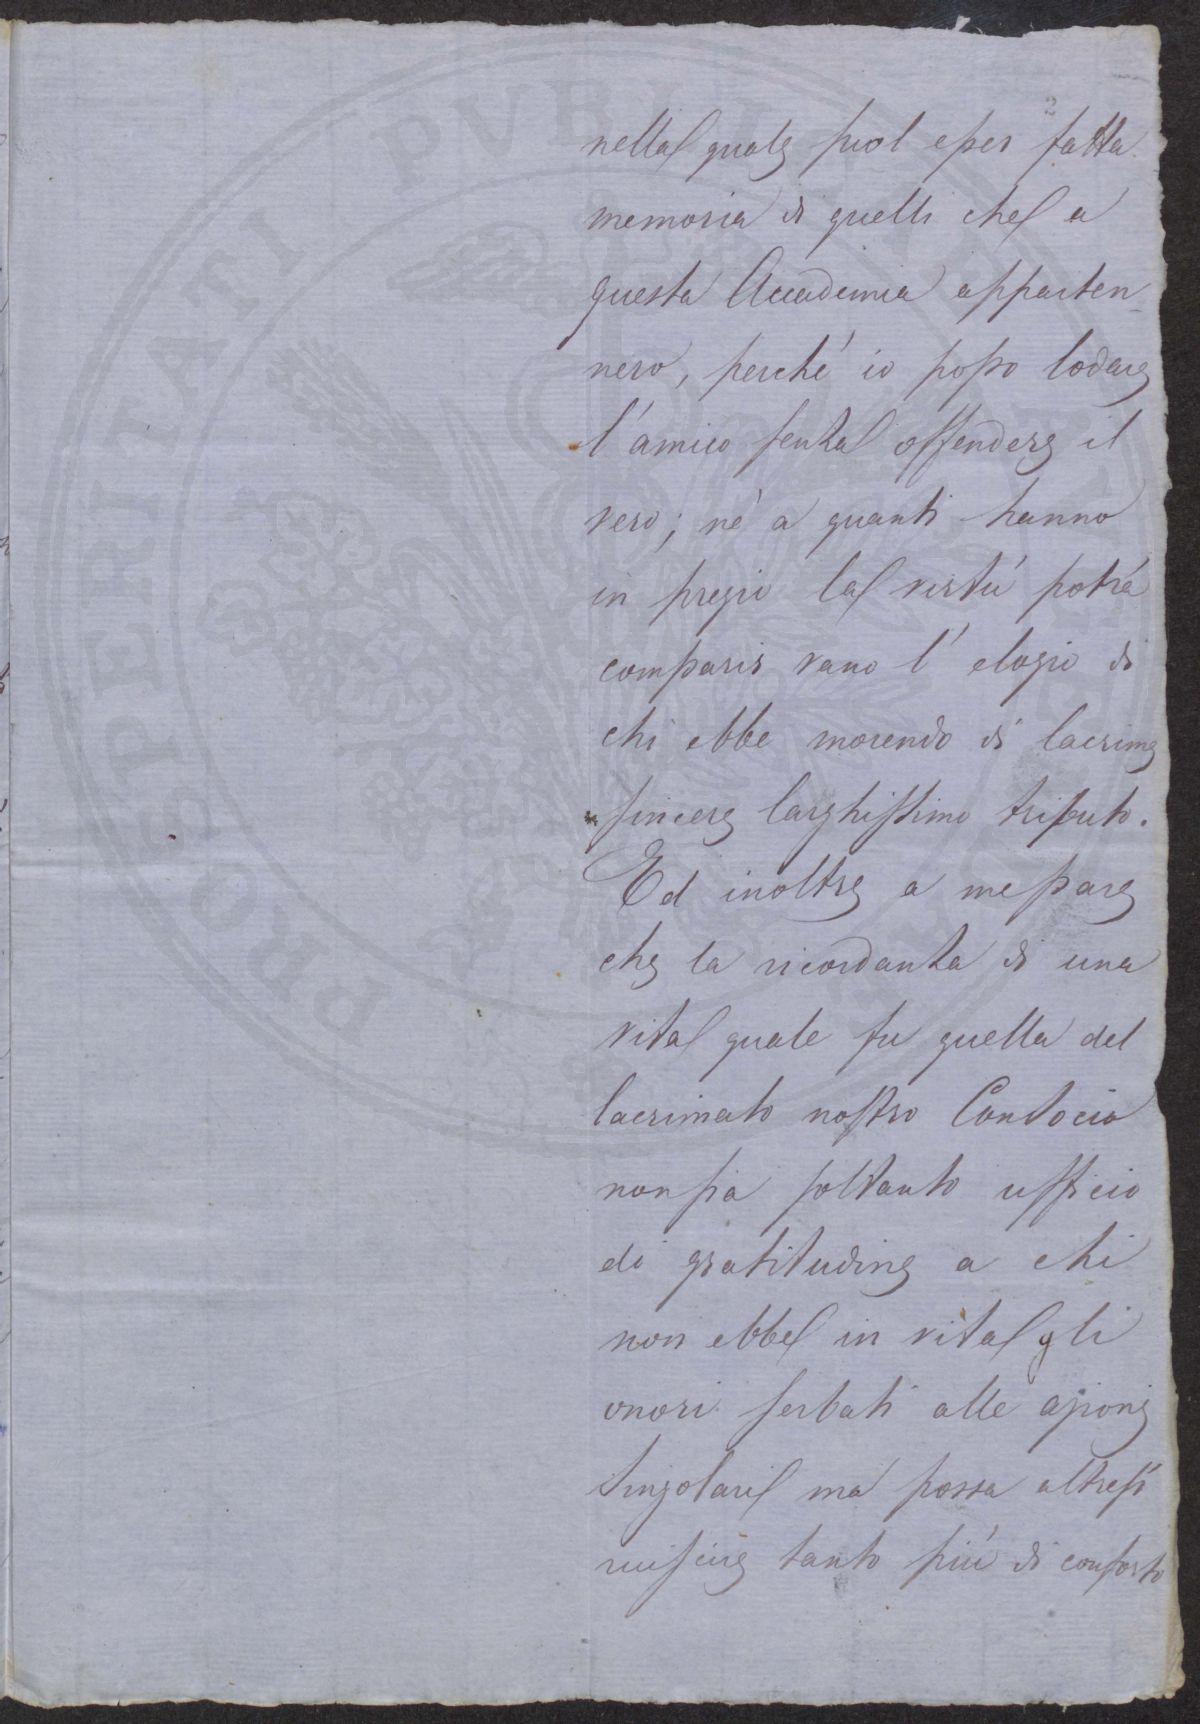 nella quale puol esser fatta
memoria di quelli che a
questa Accademia apparten-
nero, perché io posso lodare
l'amico senza offendere il
vero; né a quanti hanno
in pregio la virtù potrà
comparir vano l'elogio di
chi ebbe morendo di lacrime
sincere larghissimo tributo.
Ed inoltre a me pare
che la ricordanza di una
vita quale fu quella del
lacrimato nostro
non sia soltanto ufficio
di gratitudine a chi
non ebbe in vita gli
onori serbati alle azioni
singolari ma possa altresì
riuscire tanto più di conforto
PROSPERITATI PVBLICAE